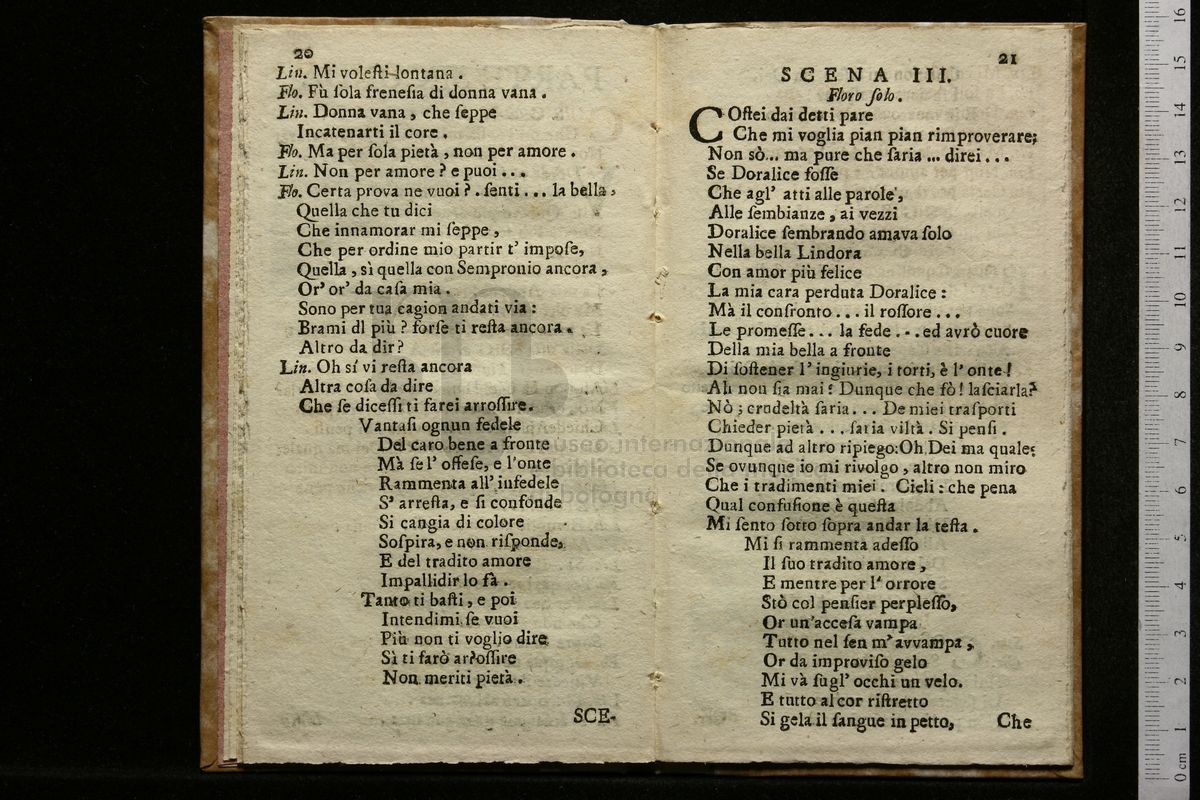 20
Lin. Mi volesti lontana.
Flo. Fù sola frenesia di donna vana.
Lin. Donna vana, che seppe
Incatenarti il core.
Flo. Ma per sola pietà, non per amore.
Lin. Non per amore? e puoi...
Flo. Certa prova ne vuoi?. senti... la bella,
Quella che tu dici
Che innamorar mi seppe,
Che per ordine mio partir t' impose,
Quella, sì quella con Sempronio ancora,
Or' or' da casa mia.
Sono per tua cagion andati via:
Brami dl più? forse ti resta ancora.
Altro da dir?
Lin. Oh sí vi resta ancora
Altra cosa da dire
Che se dicessi ti farei arrossire.
Vantasi ognun fedele
Del caro bene a fronte
Mà se l' offese, e l'onte
Rammenta all' infedele
S' arresta, e si confonde
Si cangia di colore
Sospira, e non risponde,
E del tradito amore
Impallidir lo fà.
Tanto ti basti, e poi
Intendimi se vuoi
Più non ti voglio dire
Sì ti farò arrossire
Non meriti pietà.
SCE-
21
SCENA III.
Floro solo.
COstei dai detti pare
Che mi voglia pian pian rimproverare;
Non sò... ma pure che saria ... direi...
Se Doralice fosse
Che agl' atti alle parole,
Alle sembianze, ai vezzi
Doralice sembrando amava solo
Nella bella Lindora
Con amor più felice
La mia cara perduta Doralice:
Mà il confronto... il rossore...
Le promesse... la fede... ed avrò cuore
Della mia bella a fronte
Di sostener l' ingiurie, i torti, è l' onte!
Ah non sia mai! Dunque che fò! lasciarla?
Nò; crudeltà saria... De miei trasporti
Chieder pietà... saria viltà. Si pensi.
Dunque ad altro ripiego: Oh Dei ma quale;
Se ovunque io mi rivolgo, altro non miro
Che i tradimenti miei. Cieli: che pena
Qual confusione è questa
Mi sento sotto sopra andar la testa.
Mi si rammenta adesso
Il suo tradito amore,
E mentre per l' orrore
Stò col pensier perplesso,
Or un'accesa vampa
Tutto nel sen m' avvampa,
Or da improviso gelo
Mi và sugl' occhi un velo.
E tutto al cor ristretto
Si gela il sangue in petto,
Che